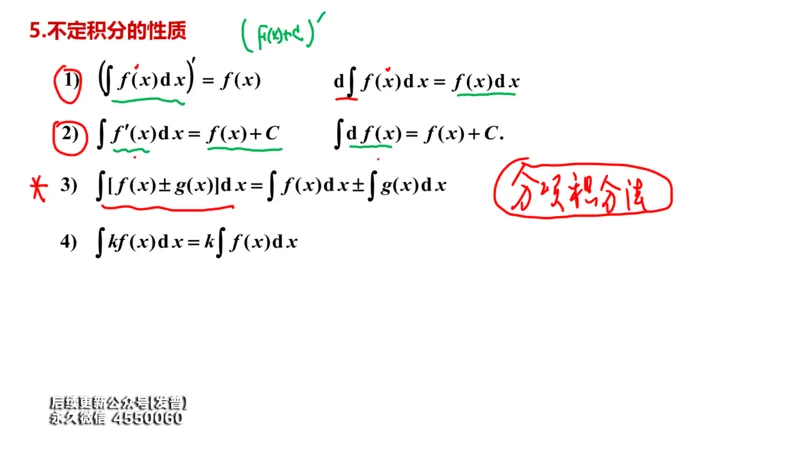 5.不定积分的性质
(F(x)+C)′
1) (∫ f(x)dx)′ = f(x)    d∫ f(x)dx = f(x)dx
2) ∫ f′(x)dx = f(x)+C    ∫d f(x) = f(x)+C.
3) ∫[f(x)±g(x)]dx = ∫ f(x)dx ± ∫ g(x)dx
分项积分法
4) ∫kf(x)dx = k∫ f(x)dx
后续更新公众号[发普]
永久微信 4550060